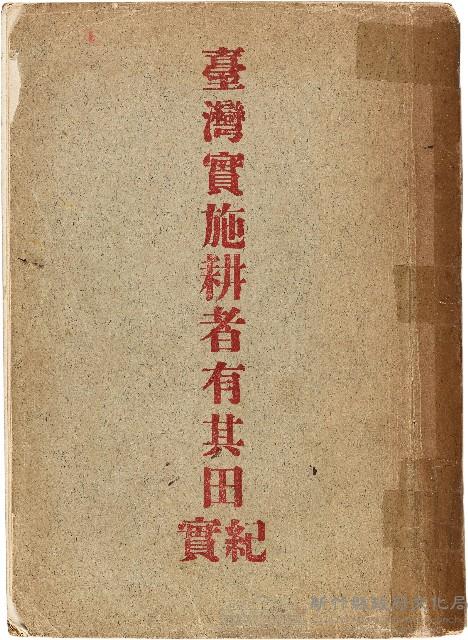 臺灣實施耕者有其田
紀實
新竹縣政府文化局